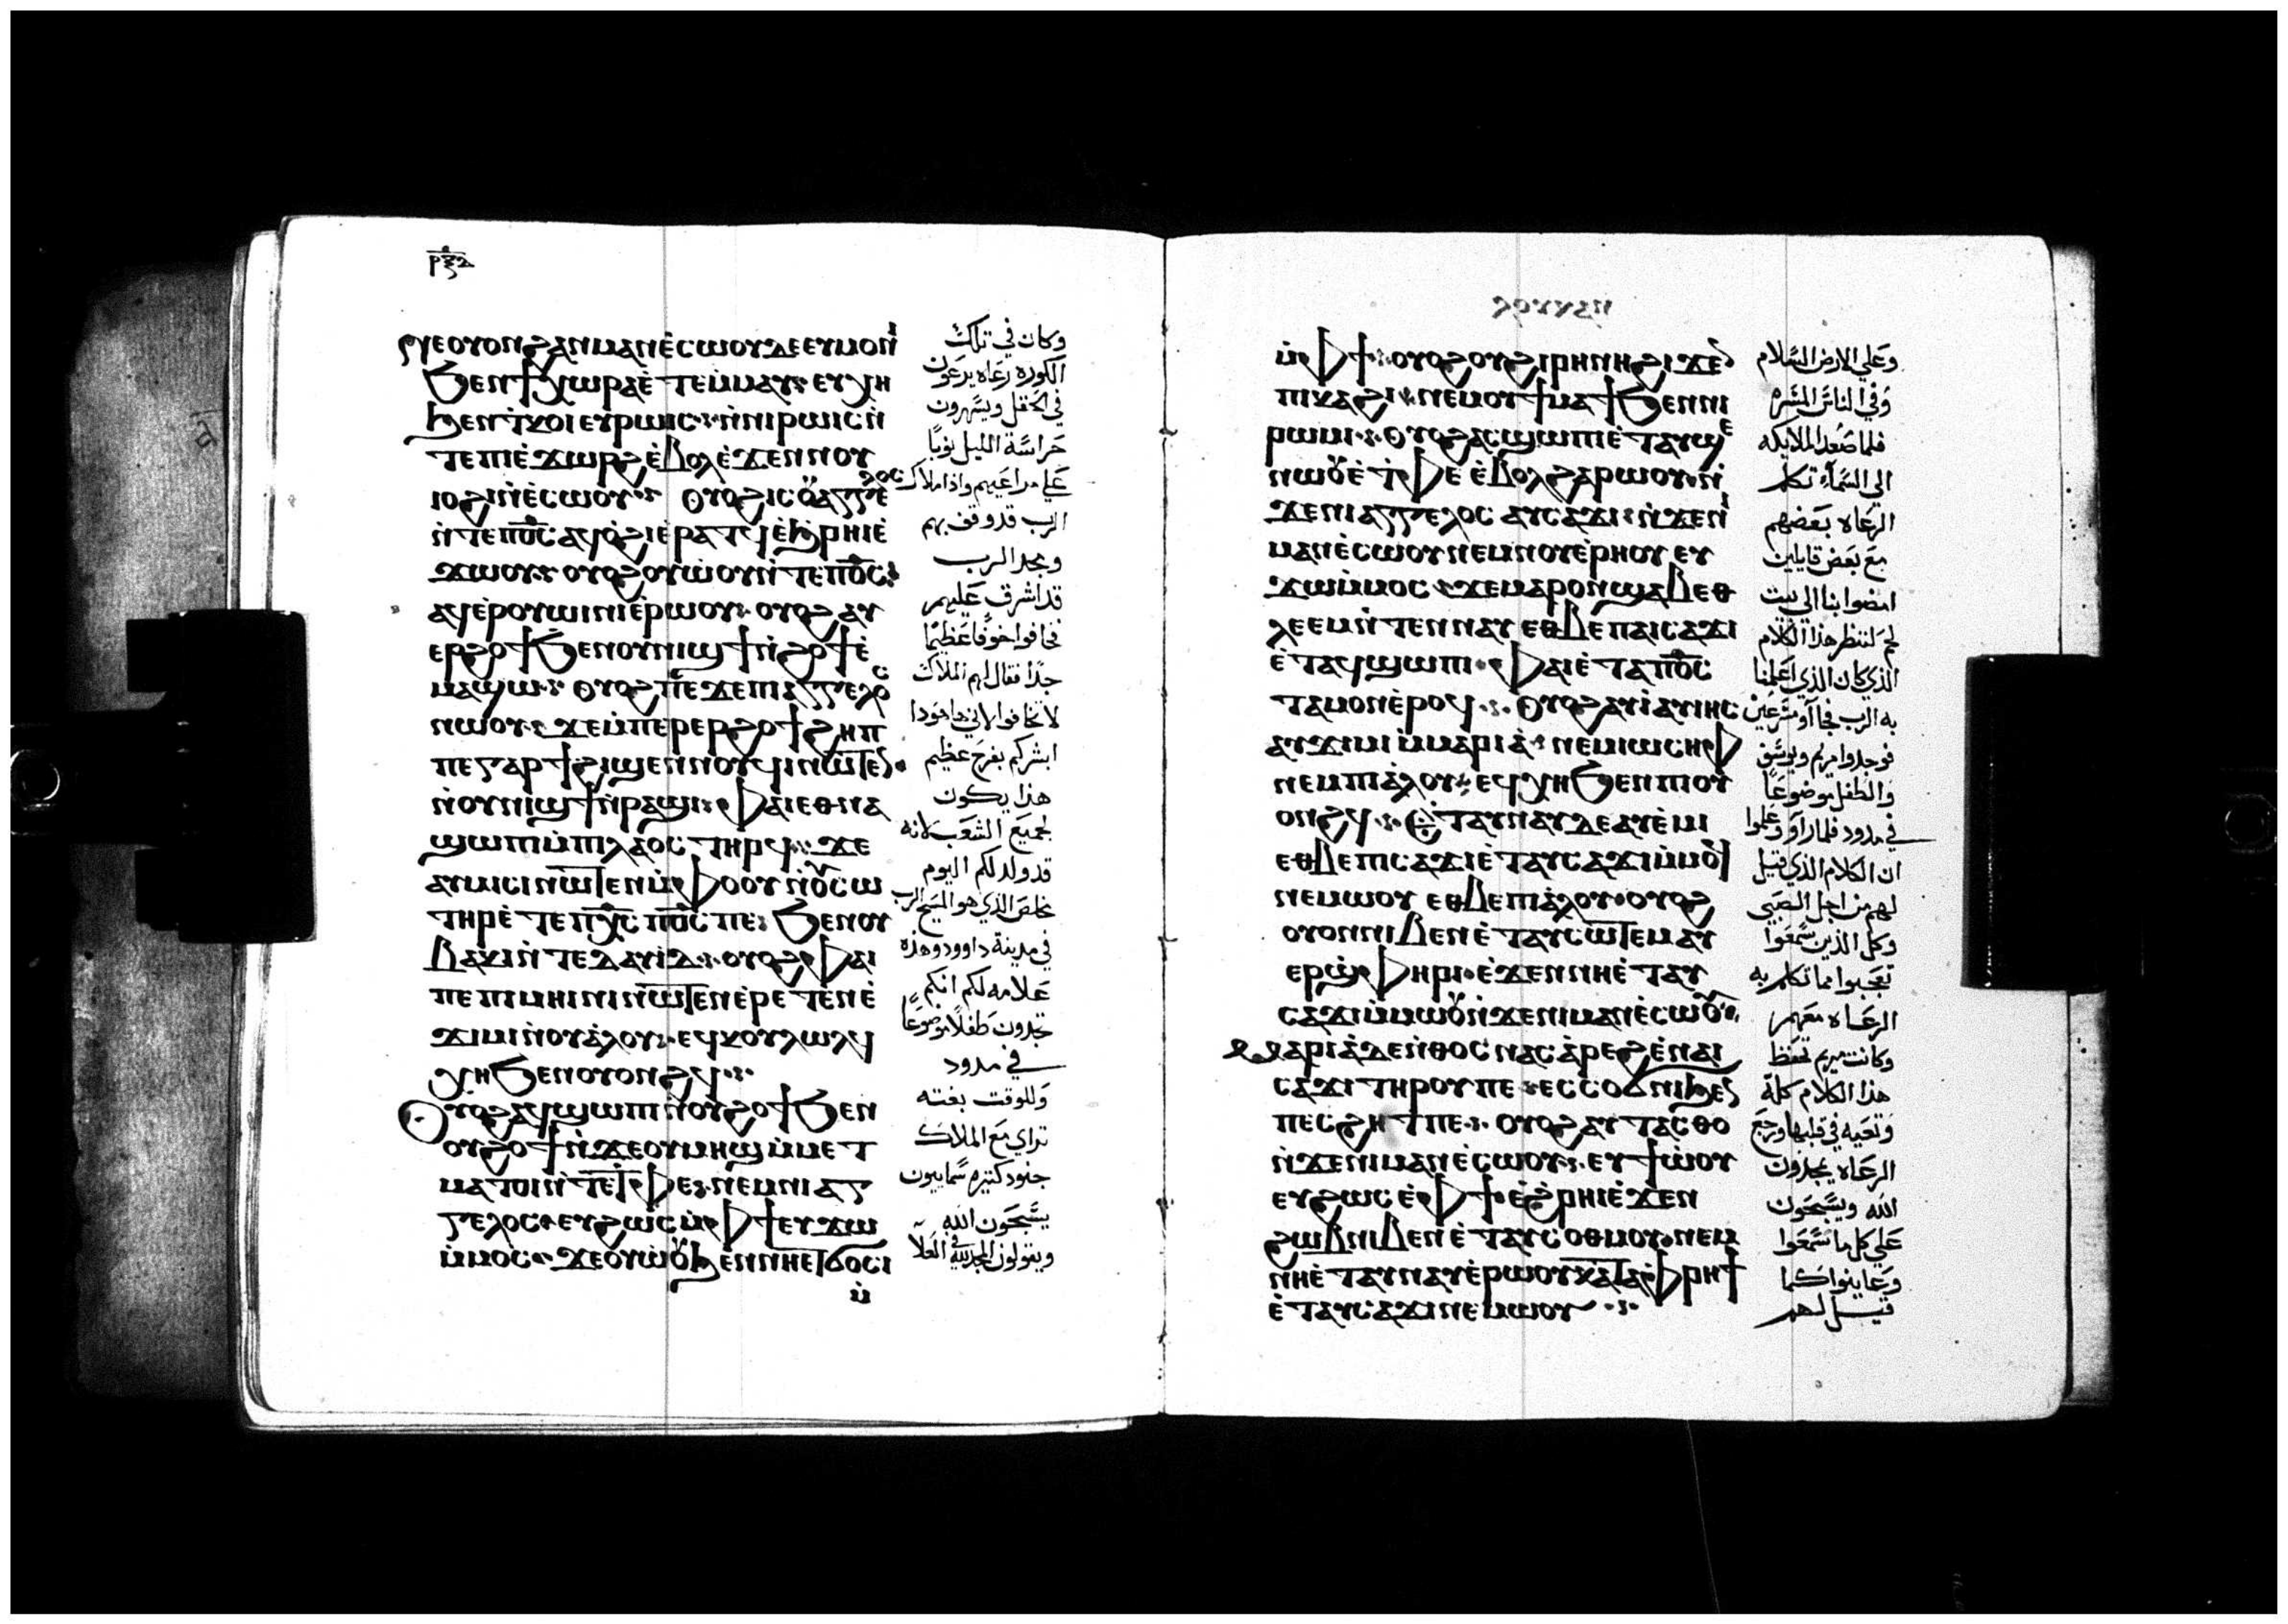 ⲛⲉⲟⲩⲟⲛϩⲁⲛⲙⲁⲛⲉ̀ⲥⲱⲟⲩⲇⲉⲉⲩⲙⲟⲛⲓ
ϧⲉⲛϯⲭⲱⲣⲁⲉ̀ⲧⲉⲙ̀ⲙⲁⲩ·ⲉⲩⲭⲏ
ϧⲉⲛⲧ̀ⲕⲟⲓⲉⲩⲣⲱⲓⲥ·ⲛ̀ⲛⲓⲣⲱⲓⲥⲛ̀
ⲧⲉⲡⲓⲉ̀ϫⲱⲣϩⲉ̀ⲃⲟⲗⲉ̀ϫⲉⲛⲛⲟⲩ
ⲓⲟϩⲓⲛ̀ⲉ̀ⲥⲱⲟⲩ· ⲟⲩⲟϩⲓⲥⲟⲩⲁⲅⲅⲉⲗⲟⲥ
ⲛ̀ⲧⲉⲡⲟ̄ⲥ̄ⲁϥⲟ̀ϩⲓⲉ̀ⲣⲁⲧϥⲉ̀ϧ̀ⲣⲏⲓⲉ̀
ϫⲱⲟⲩ·ⲟⲩⲟϩⲟⲩⲱ̀ⲟⲩⲛ̀ⲧⲉⲡⲟ̄ⲥ̄·
ⲁϥⲉ̀ⲣⲟⲩⲱⲓⲛⲓⲉ̀ⲣⲱⲟⲩ·ⲟⲩⲟϩⲁⲩ
ⲉⲣϩⲟϯϧⲉⲛⲟⲩⲛⲓϣϯⲛ̀ϩⲟϯⲉ̀
ⲙⲁϣⲱ· ⲟⲩⲟϩⲡⲉϫⲉⲡⲓⲁⲅⲅⲉⲗⲟⲥ
ⲛⲱⲟⲩ·ϫⲉⲙ̀ⲡⲉⲣⲉⲣϩⲟϯϩⲏⲡ
ⲡⲉⲅⲁⲣϯϩⲓϣⲉⲛⲛⲟⲩϥⲓⲛⲱⲧⲉⲛ·
ⲛ̀ⲟⲩⲛⲓϣϯⲛ̀ⲣⲁϣⲓ·ⲫⲁⲓⲉⲑⲛⲁ
ϣⲱⲡⲓⲙ̀ⲡⲓⲗⲁⲟⲥⲧⲏⲣϥ·ϫⲉ
ⲁⲩⲙⲓⲥⲓⲛⲱⲧⲉⲛⲙ̀ⲫⲟⲟⲩⲛ̀ⲟⲩⲥⲱ
ⲧⲏⲣⲉ̀ⲧⲉⲡⲭ̄ⲥ̄ⲡⲟ̄ⲥ̄ⲡⲉ·ϧⲉⲛⲟⲩ
ⲃⲁⲕⲓⲛ̀ⲧⲉⲇⲁⲩⲓⲇ·ⲟⲩⲟϩⲫⲁⲓ
ⲡⲉⲡⲓⲙⲏⲓⲛⲓⲛⲱⲧⲉⲛⲉ̀ⲣⲉⲧⲉⲛⲉ̀
ϫⲓⲙⲓⲛ̀ⲟⲩⲁ̀ⲗⲟⲩ·ⲉϥⲕⲟⲩⲗⲱⲗⲉϥ
ⲭⲏϧⲉⲛⲟⲩⲟⲛϩϥ·
ⲟⲩⲟϩⲁϥϣⲱⲡⲓⲛ̀ⲟⲩϩⲟϯϧⲉⲛ
ⲟⲩϩⲟϯⲛ̀ϫⲉⲟⲩⲙⲏϣⲙ̀ⲙⲉⲧ
ⲙⲁⲧⲟⲓⲛ̀ⲧⲉⲧⲫⲉ·ⲛⲉⲙⲛⲓⲁⲅ
ⲅⲉⲗⲟⲥ·ⲉⲩϩⲱⲥⲙ̀ⲫϯⲉⲩϫⲱ
ⲙ̀ⲙⲟⲥ·ϫⲉⲟⲩⲱ̀ⲟⲩϧⲉⲛⲛⲏⲉⲧϭⲟⲥⲓ
ⲙ̀
وكان في تلك
الكوره رعاه يرعون
في الحقل ويسهرون
حراسة الليل نوبًا
علي مراعيهم واذا ملاك
الرب قد وقف بهم
ومجد الرب
قد اشرق عليهم
فخافوا خوفًا عظيمًا
جدًا فقال لهم الملاك
لا تخافوا لاني هاهوذا
ابشركم بفرح عظيم
هذا يكون
لجميع الشعب لانه
قد ولد لكم اليوم
مخلص الذي هو المسيح الرب
في مدينة داوود وهذه
علامه لكم انكم
تجدون طفلًا موضوعًا
في مدود
وللوقت بغته
تراي مع الملاك
جنود كثيره سماييون
يسبحون الله
ويقولون المجد لله في العلا
ⲙ̀ⲫϯ·ⲟⲩⲟϩⲟⲩϩⲓⲣⲏⲛⲏϩⲓϫⲉⲛ
ⲡⲓⲕⲁϩⲓ·ⲛⲉⲙⲟⲩϯⲙⲁϯϧⲉⲛⲛⲓ
ⲣⲱⲙⲓ·ⲟⲩⲟϩⲁⲥϣⲱⲡⲓⲉ̀ⲧⲁⲩϣⲉ
ⲛⲱⲟⲩⲉ̀ⲧ̀ⲫⲉⲉ̀ⲃⲟⲗϩⲁⲣⲱⲟⲩ·ⲛ̀
ϫⲉⲛⲓⲁⲅⲅⲉⲗⲟⲥⲁⲩⲥⲁϫⲓ·ⲛ̀ϫⲉⲛⲓ
ⲙⲁⲛⲉ̀ⲥⲱⲟⲩⲛⲉⲙⲛⲟⲩⲉ̀ⲣⲏⲟⲩⲉⲩ
ϫⲱⲙ̀ⲙⲟⲥ·ϫⲉⲙⲁⲣⲟⲛϣⲁⲃⲉⲑ
ⲗⲉⲉⲙⲛ̀ⲧⲉⲛⲛⲁⲩⲉⲑⲃⲉⲡⲁⲓⲥⲁϫⲓ
ⲉ̀ⲧⲁϥϣⲱⲡⲓ·ⲫⲁⲓⲉ̀ⲧⲁⲡⲟ̄ⲥ̄
ⲧⲁⲙⲟⲛⲉ̀ⲣⲟϥ·ⲟⲩⲟϩⲁⲩⲓ̀ⲁⲩⲓⲏⲥ
ⲁⲩϫⲓⲙⲓⲙ̀ⲙⲁⲣⲓⲁ̀·ⲛⲉⲙⲓⲱⲥⲏⲫ
ⲛⲉⲙⲡⲓⲁ̀ⲗⲟⲩ·ⲉϥⲭⲏϧⲉⲛⲡⲓⲟⲩ
ⲟⲛϩϥ·ⲉ̀ⲧⲁⲩⲛⲁⲩⲇⲉⲁⲩⲉ̀ⲙⲓ
ⲉⲑⲃⲉⲡⲓⲥⲁϫⲓⲉ̀ⲧⲁⲩⲥⲁϫⲓⲙ̀ⲙⲟϥ
ⲛⲉⲙⲱⲟⲩⲉⲑⲃⲉⲡⲓⲁ̀ⲗⲟⲩ·ⲟⲩⲟϩ
ⲟⲩⲟⲛⲛⲓⲃⲉⲛⲉ̀ⲧⲁⲩⲥⲱⲧⲉⲙⲁⲩ
ⲉⲣϣ̀ⲫⲏⲣⲓ·ⲉ̀ϫⲉⲛⲛⲏⲉ̀ⲧⲁⲩ
ⲥⲁϫⲓⲙ̀ⲙⲱⲟⲩⲛ̀ϫⲉⲛⲓⲙⲁⲛⲉ̀ⲥⲱⲟⲩ·
ⲙⲁⲣⲓⲁ̀ⲇⲉⲛ̀ⲑⲟⲥⲛⲁⲥⲁ̀ⲣⲉϩⲉ̀ⲛⲁⲓ
ⲥⲁϫⲓⲧⲏⲣⲟⲩⲡⲉ·ⲉⲥⲥⲟϭⲛⲓϧⲉⲛ
ⲡⲉⲥϩⲏⲧⲡⲉ·ⲟⲩⲟϩⲁⲩⲧⲁⲥⲑⲟ
ⲛ̀ϫⲉⲛⲓⲙⲁⲛⲉ̀ⲥⲱⲟⲩ·ⲉⲩϯⲱ̀ⲟⲩ
ⲉⲩϩⲱⲥⲉ̀ⲫϯ·ⲉ̀ϩ̀ⲣⲏⲓⲉ̀ϫⲉⲛ
ϩⲱⲃⲛⲓⲃⲉⲛⲉ̀ⲧⲁⲩⲥⲟⲑⲙⲟⲩ·ⲛⲉⲙ
ⲛⲏⲉ̀ⲧⲁⲩⲛⲁⲩⲉ̀ⲣⲱⲟⲩⲕⲁⲧⲁⲫⲣⲏϯ
ⲉ̀ⲧⲁⲩⲥⲁϫⲓⲛⲉⲙⲱⲟⲩ·
وعلي الارض السلام
وفي الناس المسره
فلما صعد الملايكه
الي السماء تكلم
الرعاه بعضهم
مع بعض قايلين
امضوا بنا الي بيت
لحم لننظر هذا الكلام
الذي كان الذي اعلمنا
به الرب فجآاو مسرعين
فوجدوا مريم ويوسف
والطفل موضوعًا
في مدود فلما راوه وعلموا
ان الكلام الذي قيل
لهم من اجل الصبي
وكل الذين سمعوا
تعجبوا مما تكلم به
الرعاه معهم
وكانت مريم تحفظ
هذا الكلام كلّه
وتعيه في قلبها ورجع
الرعاه يمجدون
الله ويسبحون
علي كل ما سمعوا
وعاينوا كما
قيل لهم